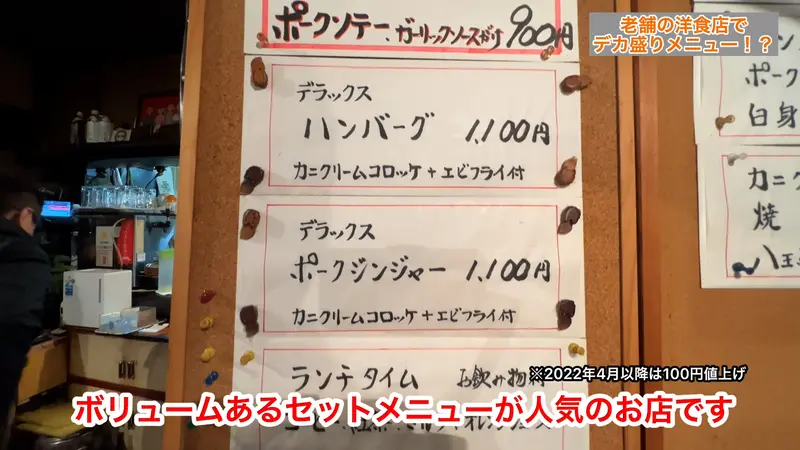 老舗の洋食店で
デカ盛りメニュー！？
ポークソテー、ガーリックソースがけ 900円
デラックス
ハンバーグ 1,100円
カニクリームコロッケ + エビフライ付
デラックス
ポークジンジャー 1,100円
カニクリームコロッケ + エビフライ付
ランチタイム お飲み物
ポーク
白身
カニク
焼
八王
※2022年4月以降は100円値上げ
ボリュームあるセットメニューが人気のお店です